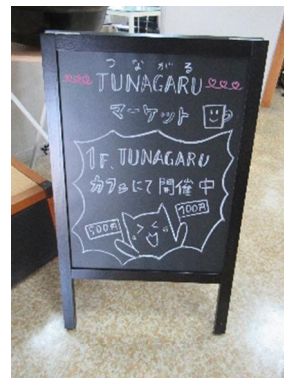 つながる
TUNAGARU
マーケット
1F. TUNAGARU
カフェにて開催中
500円
100円